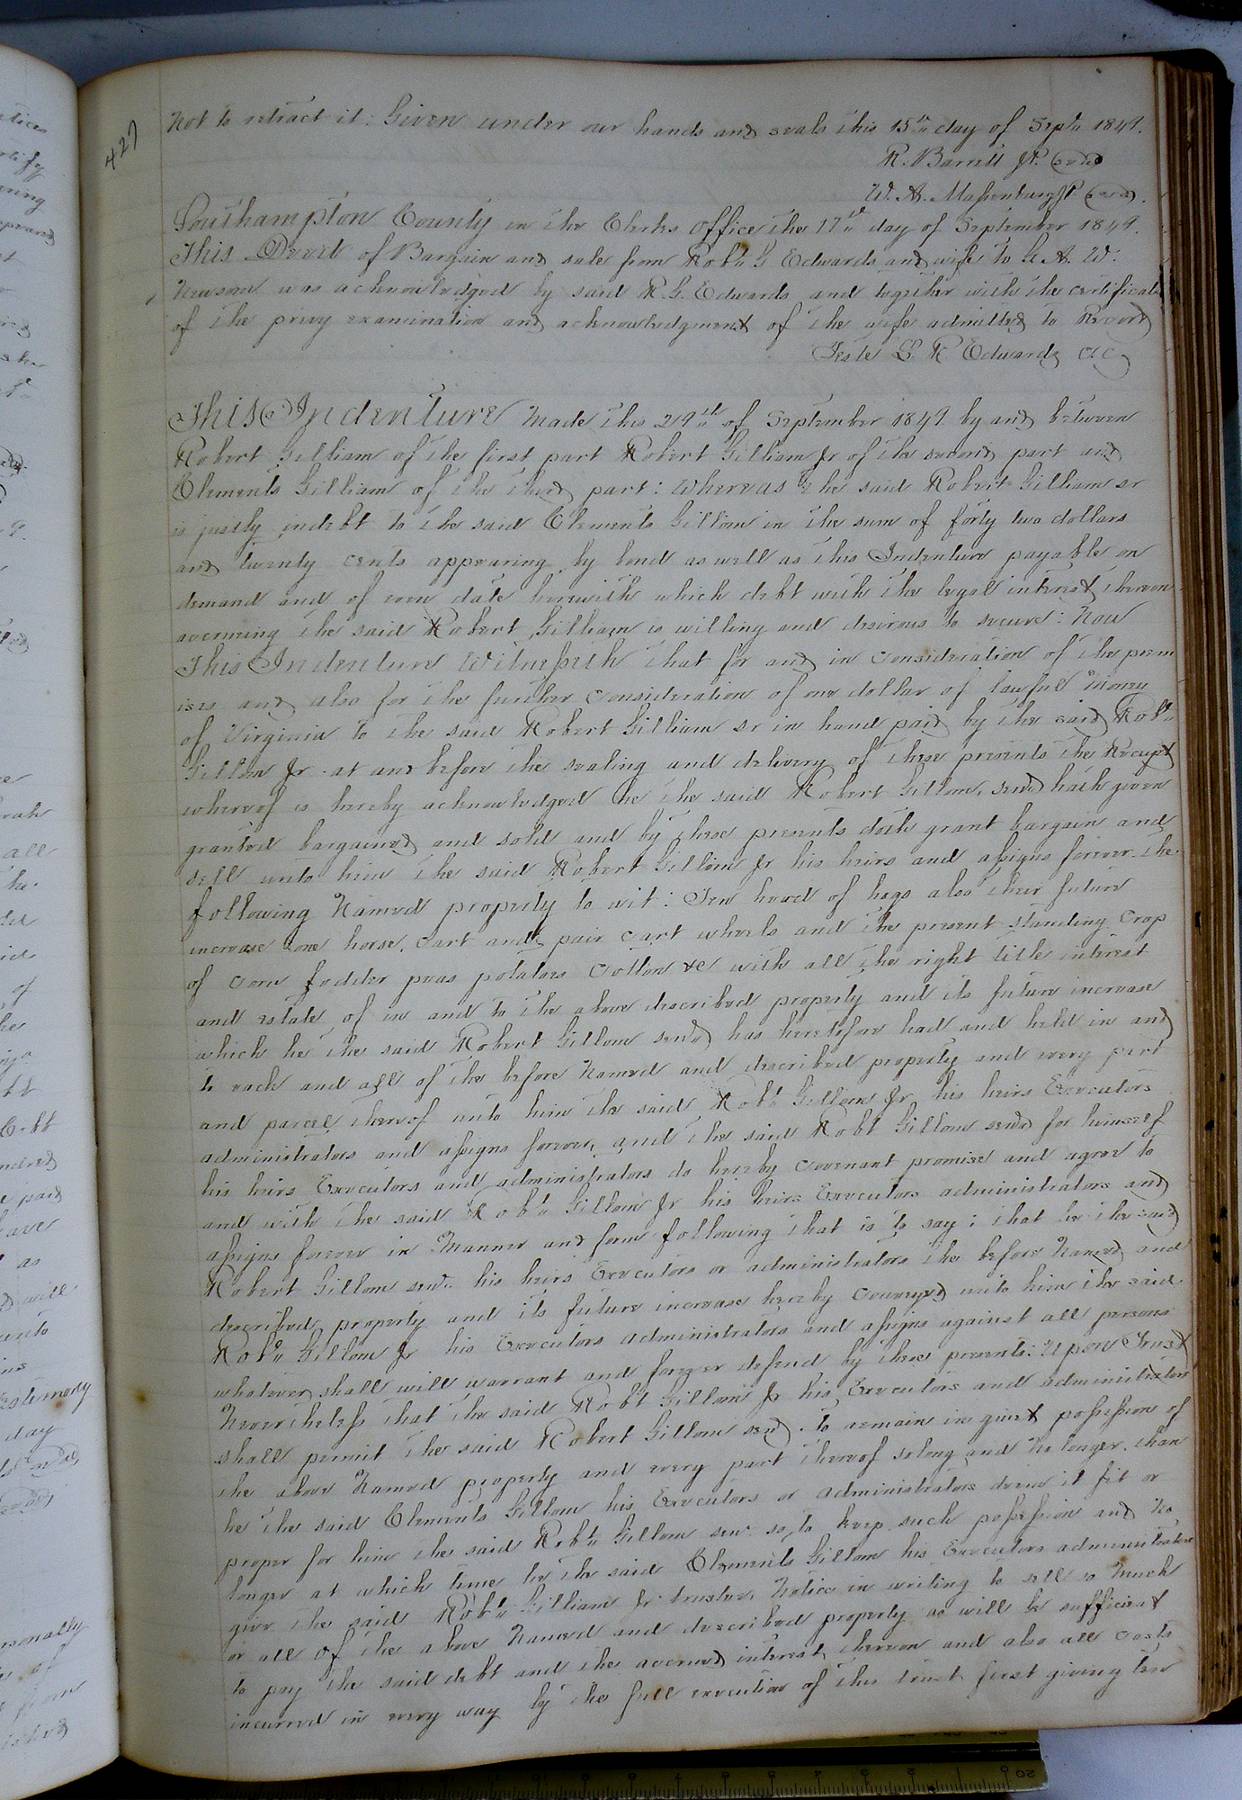 427
Not to retract it: Given under our hands and seals this 15th day of Septr 1849.
R. Barrett JP. (seal)
W. A. Massenburg JP (seal).
Southampton County in the Clerks office the 17th day of September 1849.
This Deed of Bargain and sale from Robt G Edwards and wife to G. A. W.
Newsom was acknowledged by said R. G. Edwards and together with the certificate
of the privy examination and acknowledgment of the wife admitted to Record
Teste L. R Edwards CC
This Indenture Made this 29th of September 1849 by and between
Robert Gilliam of the first part Robert Gilliam Jr of the second part and
Clements Gilliam of the third part: Whereas the said Robert Gilliam sr
is justly indebt to the said Clements Gilliam in the sum of forty two dollars
and twenty cents appearing by bond as well as this Indenture payable on
demand and of even date herewith which debt with the legal interest thereon
accruing the said Robert Gilliam is willing and desirous to secure: Now
This Indenture Witnesseth that for and in consideration of the prem
ises and also for the further consideration of one dollar of lawful Money
of Virginia to the said Robert Gilliam sr in hand paid by the said Robt
Gillom Jr at and before the sealing and delivery of these presents the Receipt
whereof is hereby acknowledged he the said Robert Gillom, send hath given
granted bargained and sold and by these presents doth grant bargain and
sell unto him the said Robert Gillom Jr his heirs and assigns forever the
following Named property to wit: Ten head of hogs also their future
increase one horse, Cart and pair cart wheels and the present standing Crop
of corn fodder peas potatoes Cotton &c with all the right title interest
and estate of in and to the above described property and its future increase
which he the said Robert Gillom send has heretofore had and held in and
to each and all of the before Named and described property and every part
and parcel thereof unto him the said Robt Gillom Jr his heirs Executors
administrators and assigns forever, and the said Robt Gillom send for himself
his heirs Executors and administrators do hereby Covenant promise and agree to
and with the said Robt Gillom Jr his heirs Executors administrators and
assigns forever in Manner and form following that is to say: that he the said
Robert Gillom senr. his heirs Executors or administrators the before Named and
described property and its future increase hereby Conveyed unto him the said
Robt Gillom Jr his Executors administrators and assigns against all persons
whatever shall will warrant and forever defend by these presents: Upon Trust
Nevertheless that the said Robt Gillom Jr his Executors and administrators
shall permit the said Robert Gillom send. to remain in quiet possession of
the above Named property and every part thereof so long and No longer than
he the said Clements Gillom his Executors or administrators deem it fit or
proper for him the said Robt Gillom sen. so to keep such possession and No
longer at which time he the said Clements Gillom his Executors administrators
give the said Robt Gilliam Jr trustee Notice in writing to sell so Much
or all of the above Named and described property as will be sufficient
to pay the said debt and the accrued interest thereon and also all costs
incurred in every way by the full execution of this trust first giving ten